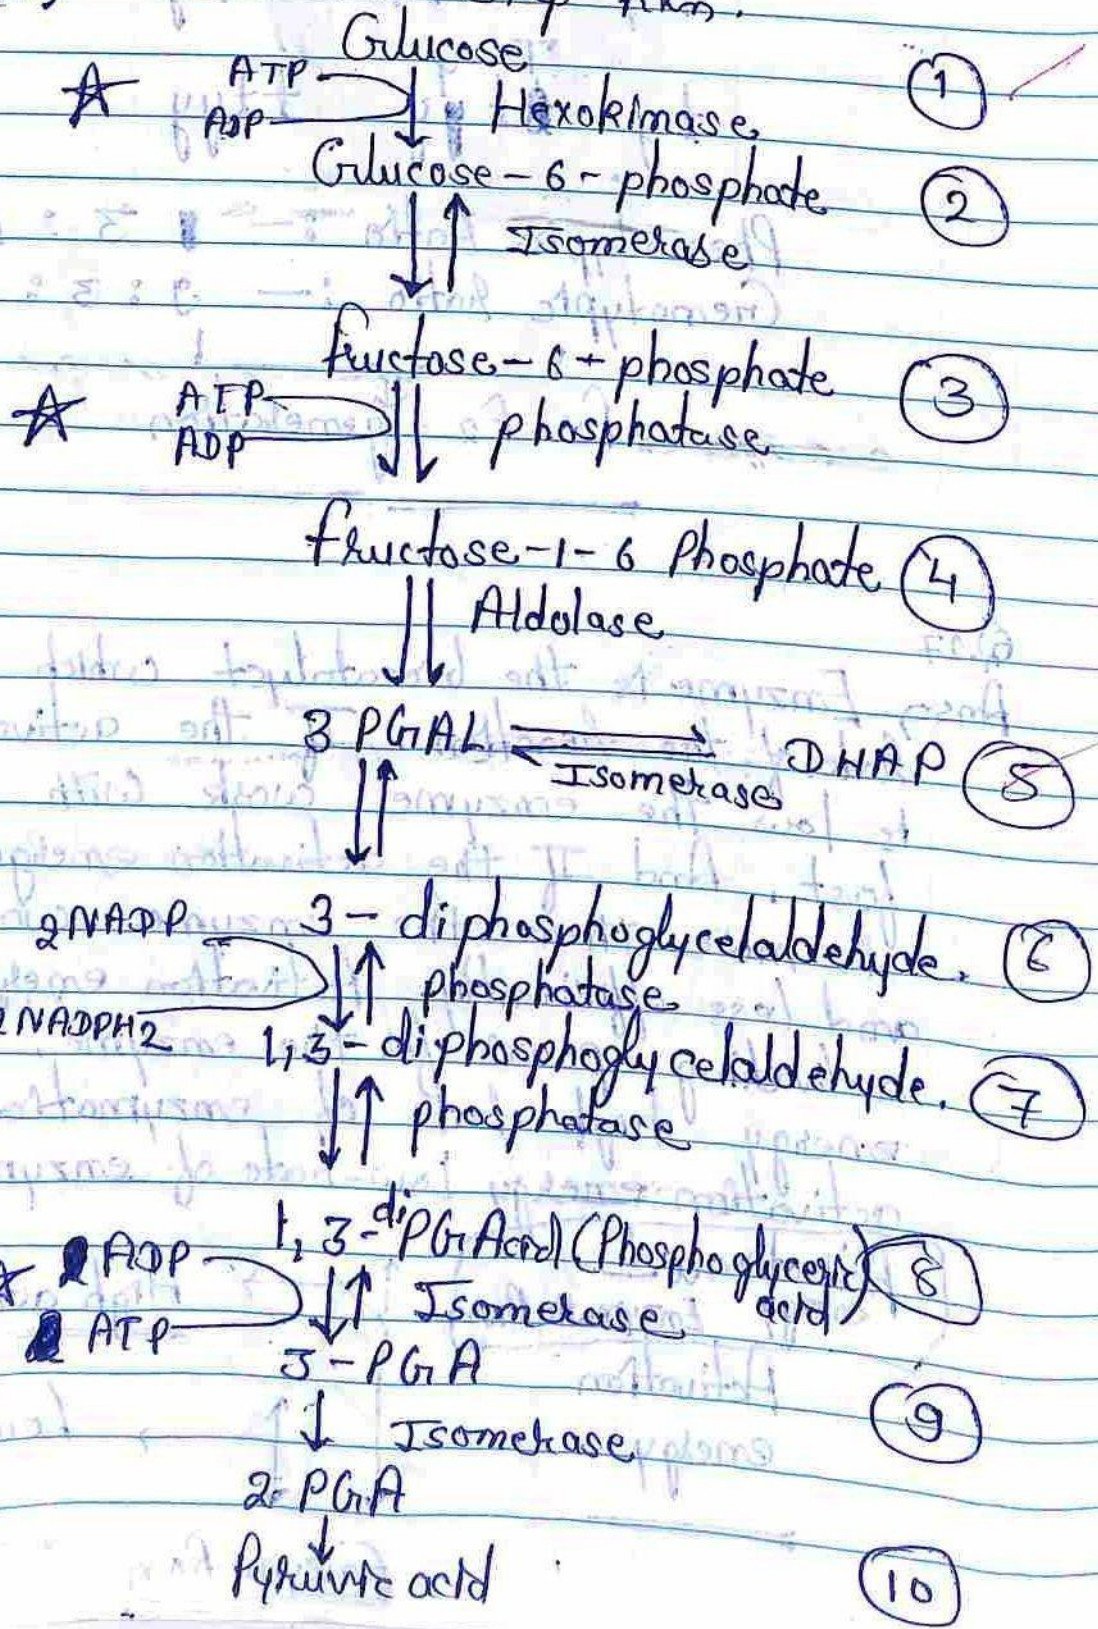 Glucose
ATP
ADP
Hexokinase
1
Glucose - 6 - phosphate
2
Isomerase
fructose - 6 - phosphate
3
ATP
ADP
phosphatase
fructose - 1 - 6 Phosphate
4
Aldolase
3 PGAL
DHAP
5
Isomerase
2NADP
3 - diphosphoglycelaldehyde.
6
phosphatase
NADPH2
1,3 - diphosphoglycelaldehyde.
7
phosphatase
1, 3 - diPGAcid (Phosphoglyceric acid)
8
ADP
ATP
Isomerase
3 - PGA
9
Isomerase
2 PGA
Pyruvic acid
10